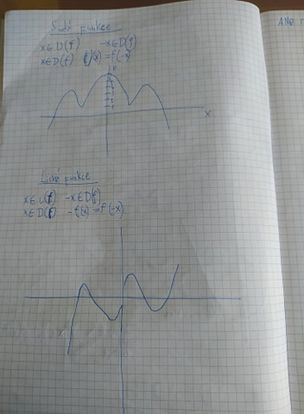 Sudá funkce
x∈D(f) -x∈D(f)
x∈D(f) f(x)=f(-x)
x
Lichá funkce
x∈D(f) -x∈D(f)
x∈D(f) -f(x)=f(-x)